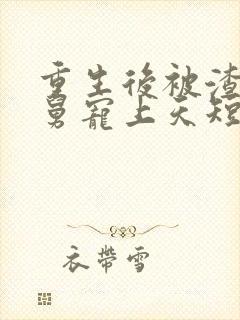 重生後被渣
舅寵上天短
衣帶雪